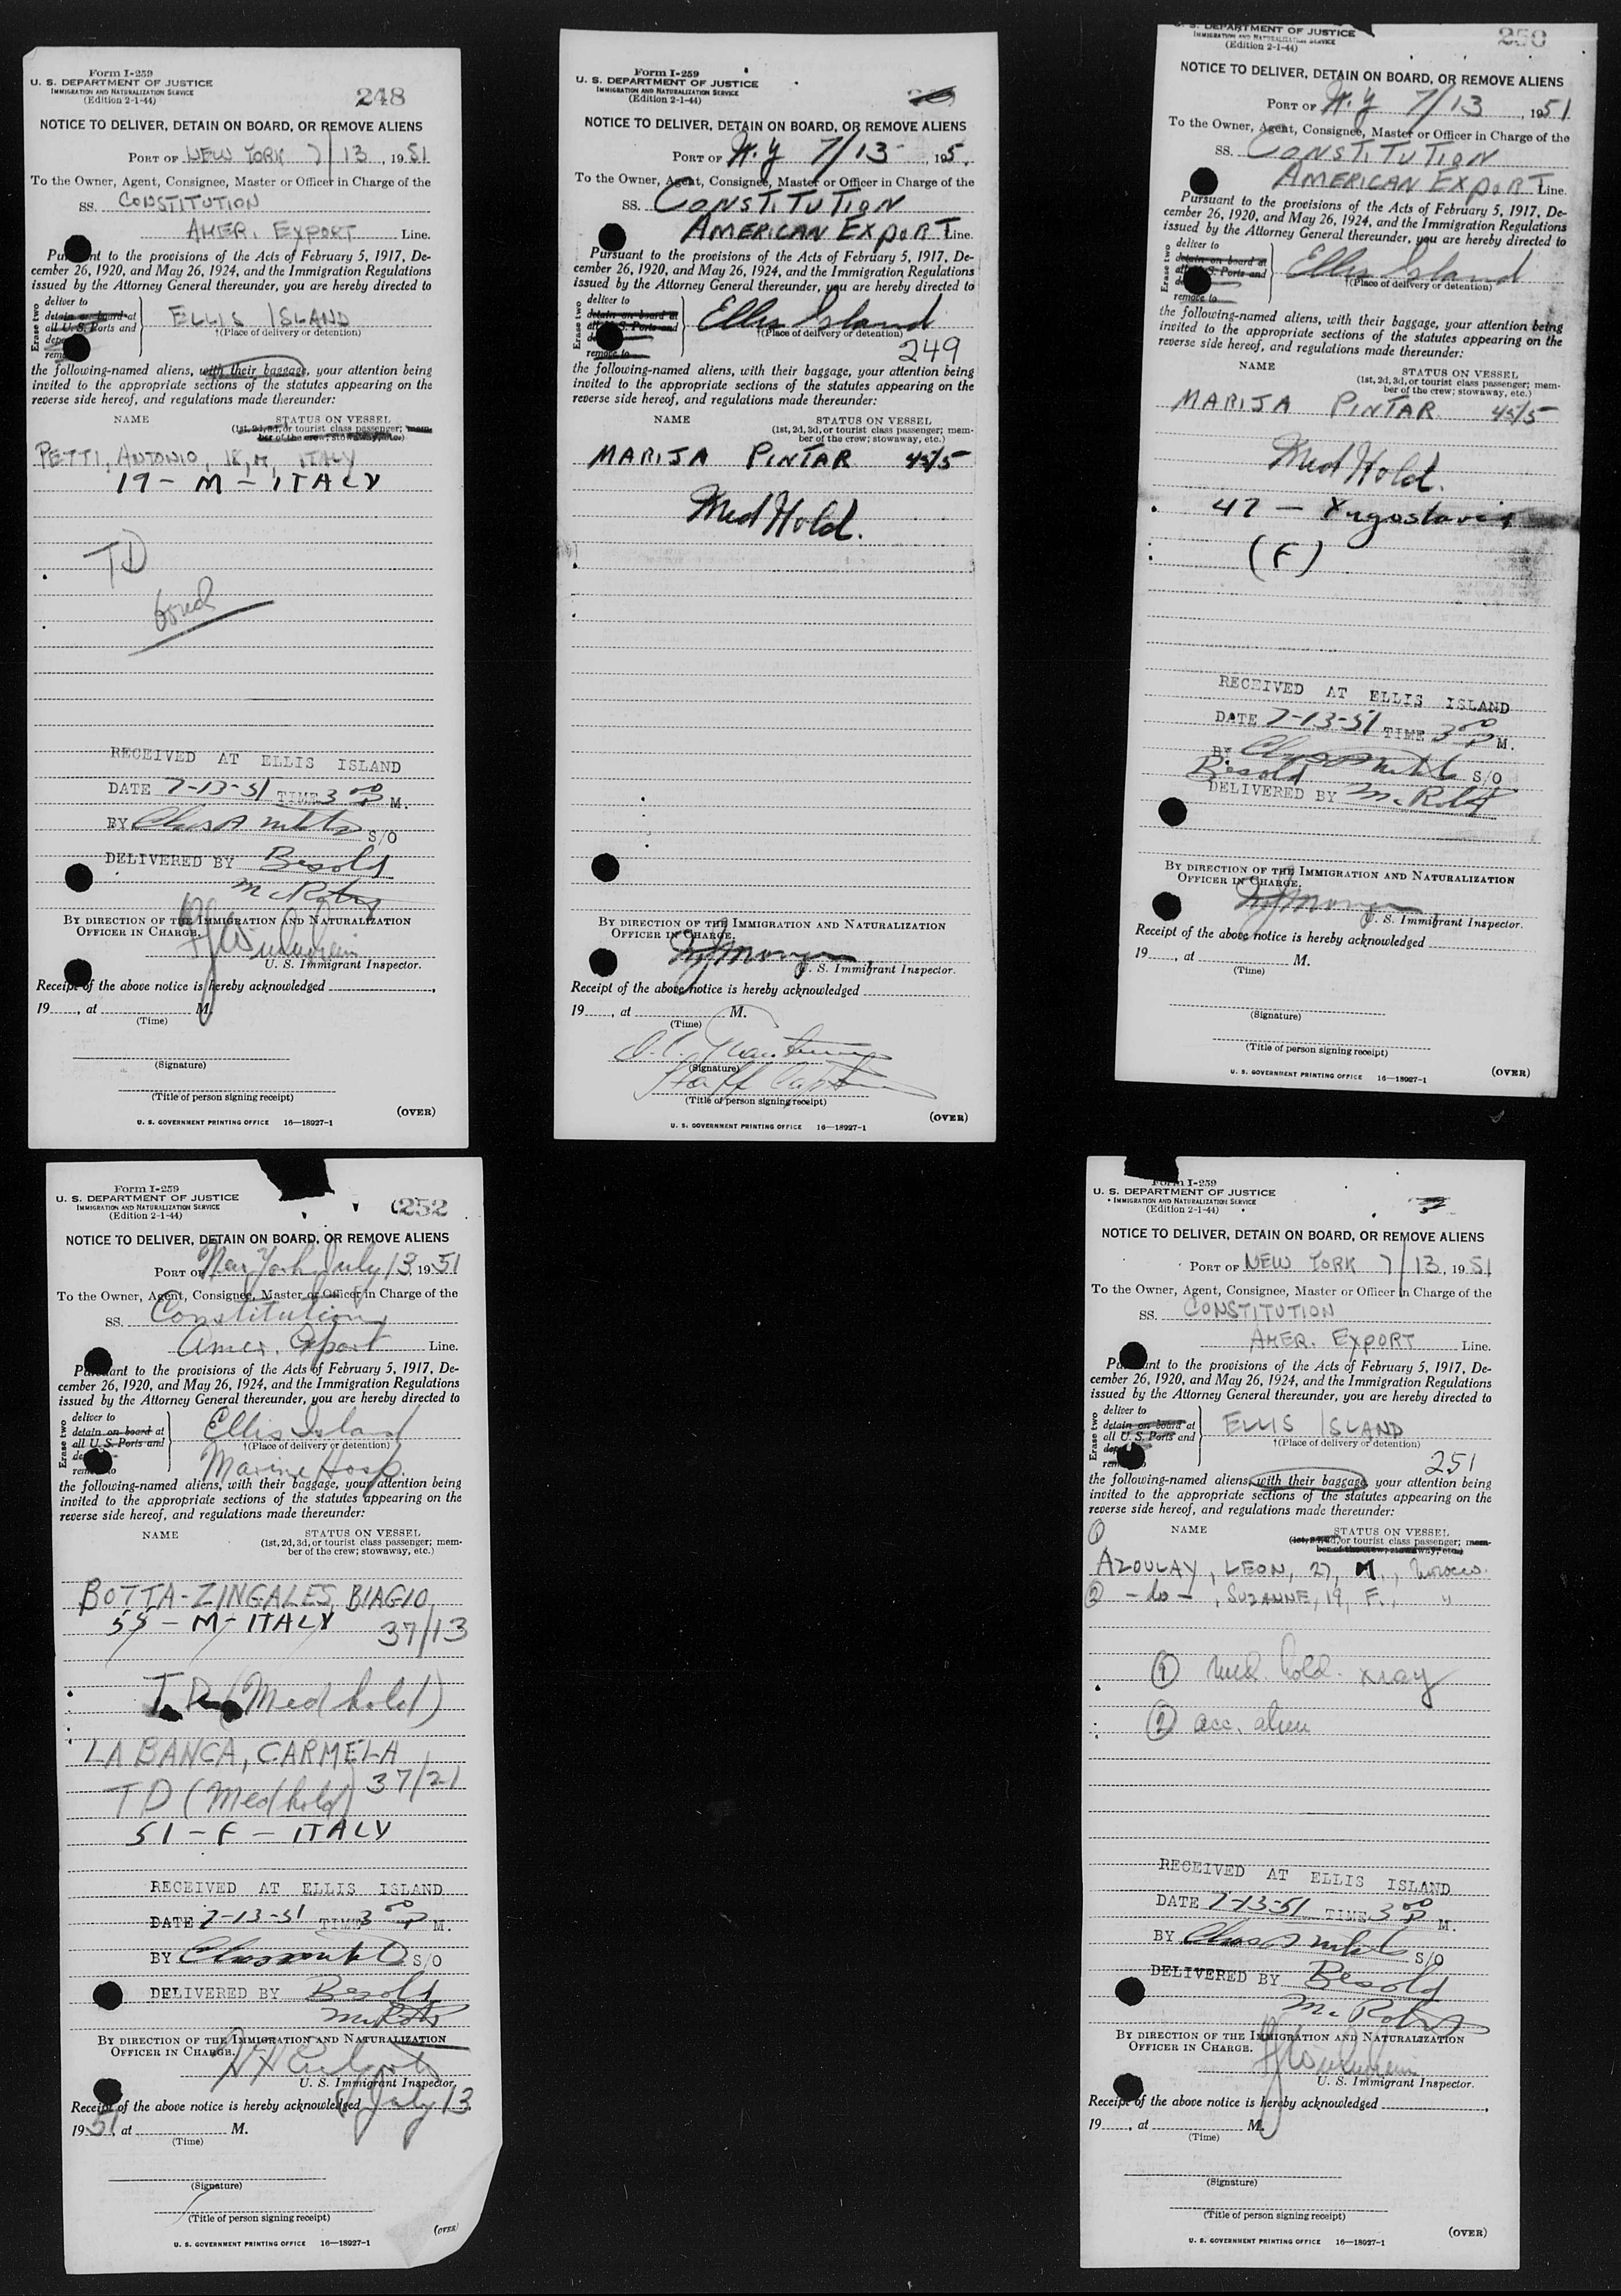 Form I-259
U. S. DEPARTMENT OF JUSTICE
IMMIGRATION AND NATURALIZATION SERVICE
(Edition 2-1-44)
248
NOTICE TO DELIVER, DETAIN ON BOARD, OR REMOVE ALIENS
PORT OF NEW YORK 7/13, 1951
To the Owner, Agent, Consignee, Master or Officer in Charge of the
SS. CONSTITUTION
AMER. EXPORT Line.
Pursuant to the provisions of the Acts of February 5, 1917, De-
cember 26, 1920, and May 26, 1924, and the Immigration Regulations
issued by the Attorney General thereunder, you are hereby directed to
Erase two
deliver to
detain on board at
all U. S. Ports and
remove to
ELLIS ISLAND
†(Place of delivery or detention)
the following-named aliens, with their baggage, your attention being
invited to the appropriate sections of the statutes appearing on the
reverse side hereof, and regulations made thereunder:
NAME STATUS ON VESSEL
(1st, 2d, 3d, or tourist class passenger; mem-
ber of the crew; stowaway, etc.)
PETTI, ANTONIO, 18, M, ITALY
19 - M - ITALY
TD
bond
RECEIVED AT ELLIS ISLAND
DATE 7-13-51 TIME 3 00 P M.
BY S/O
DELIVERED BY Besold
McRoberts
BY DIRECTION OF THE IMMIGRATION AND NATURALIZATION
OFFICER IN CHARGE.
U. S. Immigrant Inspector.
Receipt of the above notice is hereby acknowledged
19 , at M.
(Time)
(Signature)
(Title of person signing receipt)
(OVER)
U. S. GOVERNMENT PRINTING OFFICE 16—18927-1
Form I-259
U. S. DEPARTMENT OF JUSTICE
IMMIGRATION AND NATURALIZATION SERVICE
(Edition 2-1-44)
NOTICE TO DELIVER, DETAIN ON BOARD, OR REMOVE ALIENS
PORT OF N.Y 7/13 195.
To the Owner, Agent, Consignee, Master or Officer in Charge of the
SS. CONSTITUTION
AMERICAN EXPORT Line.
Pursuant to the provisions of the Acts of February 5, 1917, De-
cember 26, 1920, and May 26, 1924, and the Immigration Regulations
issued by the Attorney General thereunder, you are hereby directed to
Erase two
deliver to
detain on board at
all U. S. Ports and
remove to
Ellis Island
†(Place of delivery or detention)
249
the following-named aliens, with their baggage, your attention being
invited to the appropriate sections of the statutes appearing on the
reverse side hereof, and regulations made thereunder:
NAME STATUS ON VESSEL
(1st, 2d, 3d, or tourist class passenger; mem-
ber of the crew; stowaway, etc.)
MARIJA PINTAR 45/5
Med Hold.
BY DIRECTION OF THE IMMIGRATION AND NATURALIZATION
OFFICER IN CHARGE.
U. S. Immigrant Inspector.
Receipt of the above notice is hereby acknowledged
19 , at M.
(Time)
(Signature)
Staff Captain
(Title of person signing receipt)
(OVER)
U. S. GOVERNMENT PRINTING OFFICE 16—18927-1
U. S. DEPARTMENT OF JUSTICE
IMMIGRATION AND NATURALIZATION SERVICE
(Edition 2-1-44)
250
NOTICE TO DELIVER, DETAIN ON BOARD, OR REMOVE ALIENS
PORT OF N.Y 7/13, 1951
To the Owner, Agent, Consignee, Master or Officer in Charge of the
SS. CONSTITUTION
AMERICAN EXPORT Line.
Pursuant to the provisions of the Acts of February 5, 1917, De-
cember 26, 1920, and May 26, 1924, and the Immigration Regulations
issued by the Attorney General thereunder, you are hereby directed to
Erase two
deliver to
detain on board at
all U. S. Ports and
remove to
Ellis Island
†(Place of delivery or detention)
the following-named aliens, with their baggage, your attention being
invited to the appropriate sections of the statutes appearing on the
reverse side hereof, and regulations made thereunder:
NAME STATUS ON VESSEL
(1st, 2d, 3d, or tourist class passenger; mem-
ber of the crew; stowaway, etc.)
MARIJA PINTAR 45/5
Med Hold.
47 - Yugoslavia
(F)
RECEIVED AT ELLIS ISLAND
DATE 7-13-51 TIME 3 00 P M.
BY S/O
Besold
DELIVERED BY McRobts
BY DIRECTION OF THE IMMIGRATION AND NATURALIZATION
OFFICER IN CHARGE.
U. S. Immigrant Inspector.
Receipt of the above notice is hereby acknowledged
19 , at M.
(Time)
(Signature)
(Title of person signing receipt)
U. S. GOVERNMENT PRINTING OFFICE 16—18927-1 (OVER)
Form I-259
U. S. DEPARTMENT OF JUSTICE
IMMIGRATION AND NATURALIZATION SERVICE
(Edition 2-1-44)
252
NOTICE TO DELIVER, DETAIN ON BOARD, OR REMOVE ALIENS
PORT OF New York July 13, 1951
To the Owner, Agent, Consignee, Master or Officer in Charge of the
SS. Constitution
Amer. Export Line.
Pursuant to the provisions of the Acts of February 5, 1917, De-
cember 26, 1920, and May 26, 1924, and the Immigration Regulations
issued by the Attorney General thereunder, you are hereby directed to
Erase two
deliver to
detain on board at
all U. S. Ports and
remove to
Ellis Island
†(Place of delivery or detention)
Marine Hosp.
the following-named aliens, with their baggage, your attention being
invited to the appropriate sections of the statutes appearing on the
reverse side hereof, and regulations made thereunder:
NAME STATUS ON VESSEL
(1st, 2d, 3d, or tourist class passenger; mem-
ber of the crew; stowaway, etc.)
BOTTA-ZINGALES, BIAGIO
55 - M - ITALY 37/13
T.D. (Med hold)
LA BANCA, CARMELA
TD (Med hold) 37/21
51 - F - ITALY
RECEIVED AT ELLIS ISLAND
DATE 7-13-51 TIME 3 00 P M.
BY S/O
DELIVERED BY Besold
McRobts
BY DIRECTION OF THE IMMIGRATION AND NATURALIZATION
OFFICER IN CHARGE.
U. S. Immigrant Inspector.
Receipt of the above notice is hereby acknowledged July 13
1951, at M.
(Time)
(Signature)
(Title of person signing receipt)
(OVER)
U. S. GOVERNMENT PRINTING OFFICE 16—18927-1
Form I-259
U. S. DEPARTMENT OF JUSTICE
IMMIGRATION AND NATURALIZATION SERVICE
(Edition 2-1-44)
NOTICE TO DELIVER, DETAIN ON BOARD, OR REMOVE ALIENS
PORT OF NEW YORK 7/13, 1951
To the Owner, Agent, Consignee, Master or Officer in Charge of the
SS. CONSTITUTION
AMER. EXPORT Line.
Pursuant to the provisions of the Acts of February 5, 1917, De-
cember 26, 1920, and May 26, 1924, and the Immigration Regulations
issued by the Attorney General thereunder, you are hereby directed to
Erase two
deliver to
detain on board at
all U. S. Ports and
remove to
ELLIS ISLAND
†(Place of delivery or detention)
251
the following-named aliens, with their baggage, your attention being
invited to the appropriate sections of the statutes appearing on the
reverse side hereof, and regulations made thereunder:
NAME STATUS ON VESSEL
(1st, 2d, 3d, or tourist class passenger; mem-
ber of the crew; stowaway, etc.)
① AZOULAY, LEON, 27, M., Morocco.
② - do - , SUZANNE, 19, F., "
① med. hold. xray
② acc. alien
RECEIVED AT ELLIS ISLAND
DATE 7-13-51 TIME 3 00 P M.
BY S/O
DELIVERED BY Besold
McRoberts
BY DIRECTION OF THE IMMIGRATION AND NATURALIZATION
OFFICER IN CHARGE.
U. S. Immigrant Inspector.
Receipt of the above notice is hereby acknowledged
19 , at M.
(Time)
(Signature)
(Title of person signing receipt)
(OVER)
U. S. GOVERNMENT PRINTING OFFICE 16—18927-1